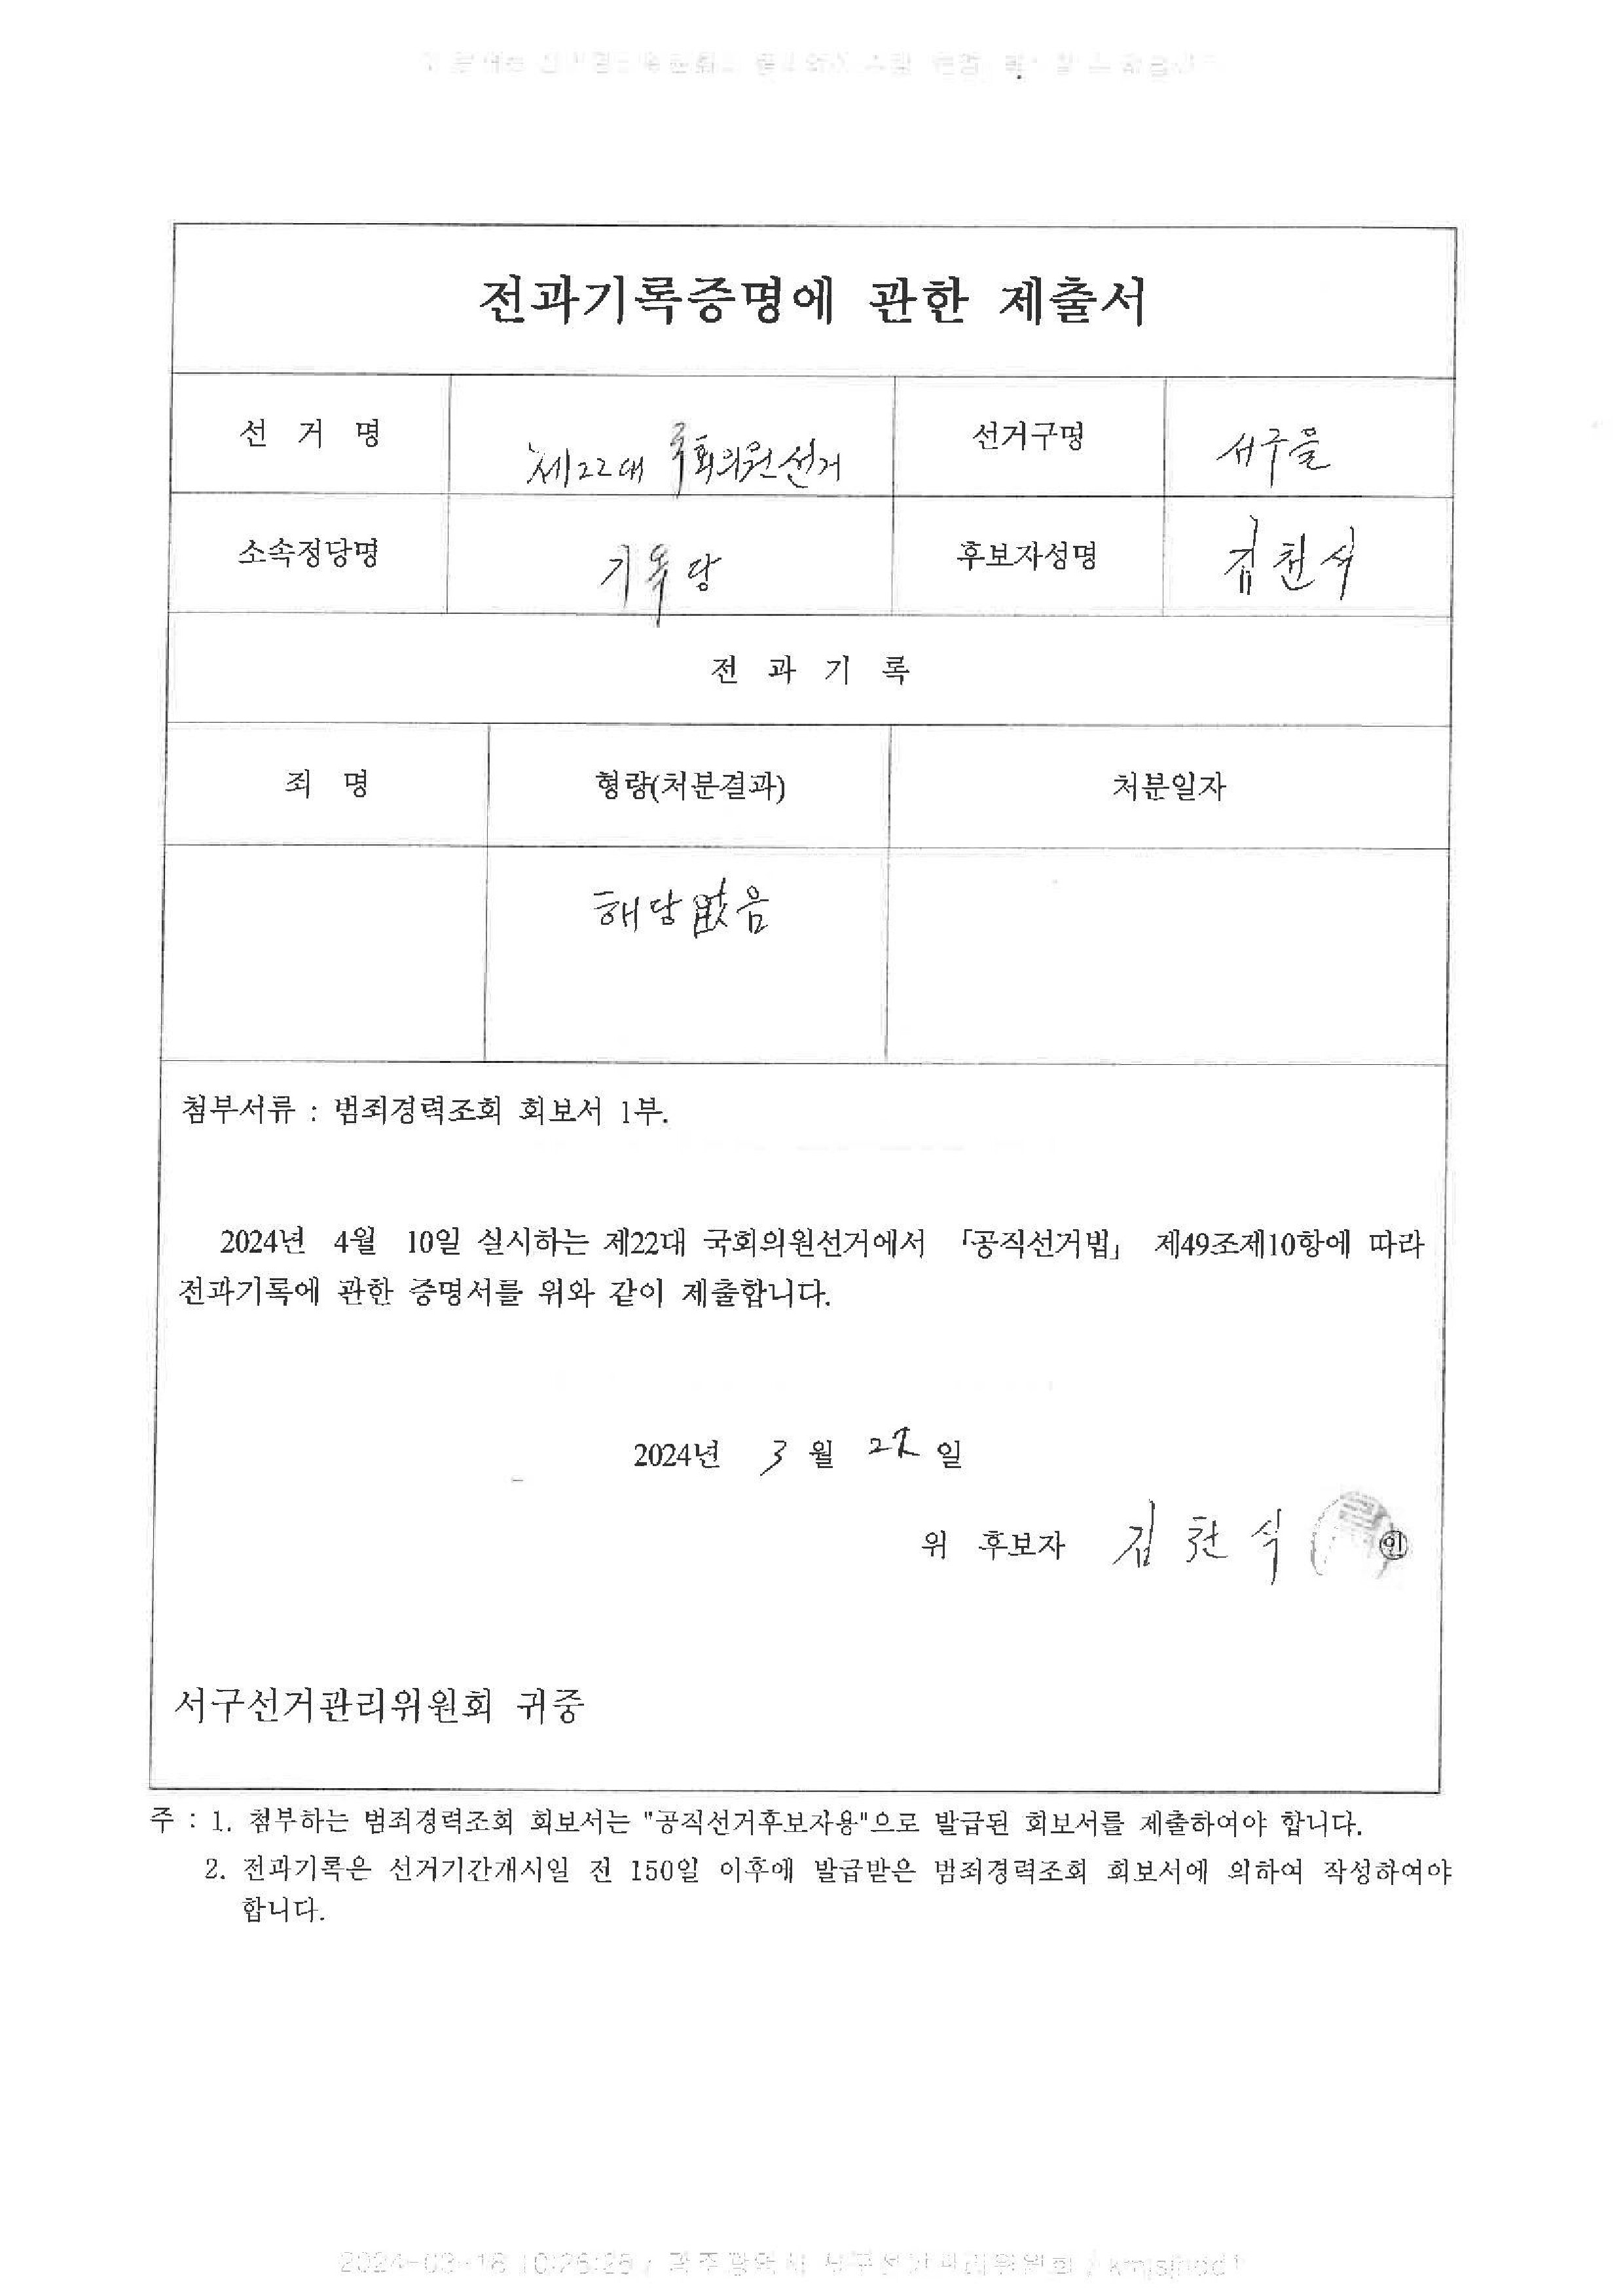 전과기록증명에 관한 제출서
선 거 명 제22대 국회의원선거 선거구명 서구을
소속정당명 기독당 후보자성명 김천식
전 과 기 록
죄 명 형량(처분결과) 처분일자
해당없음
첨부서류 : 범죄경력조회 회보서 1부.
2024년 4월 10일 실시하는 제22대 국회의원선거에서 「공직선거법」 제49조제10항에 따라
전과기록에 관한 증명서를 위와 같이 제출합니다.
2024년 3월 일
위 후보자 김천식 ㊞
서구선거관리위원회 귀중
주 : 1. 첨부하는 범죄경력조회 회보서는 "공직선거후보자용"으로 발급된 회보서를 제출하여야 합니다.
2. 전과기록은 선거기간개시일 전 150일 이후에 발급받은 범죄경력조회 회보서에 의하여 작성하여야
합니다.